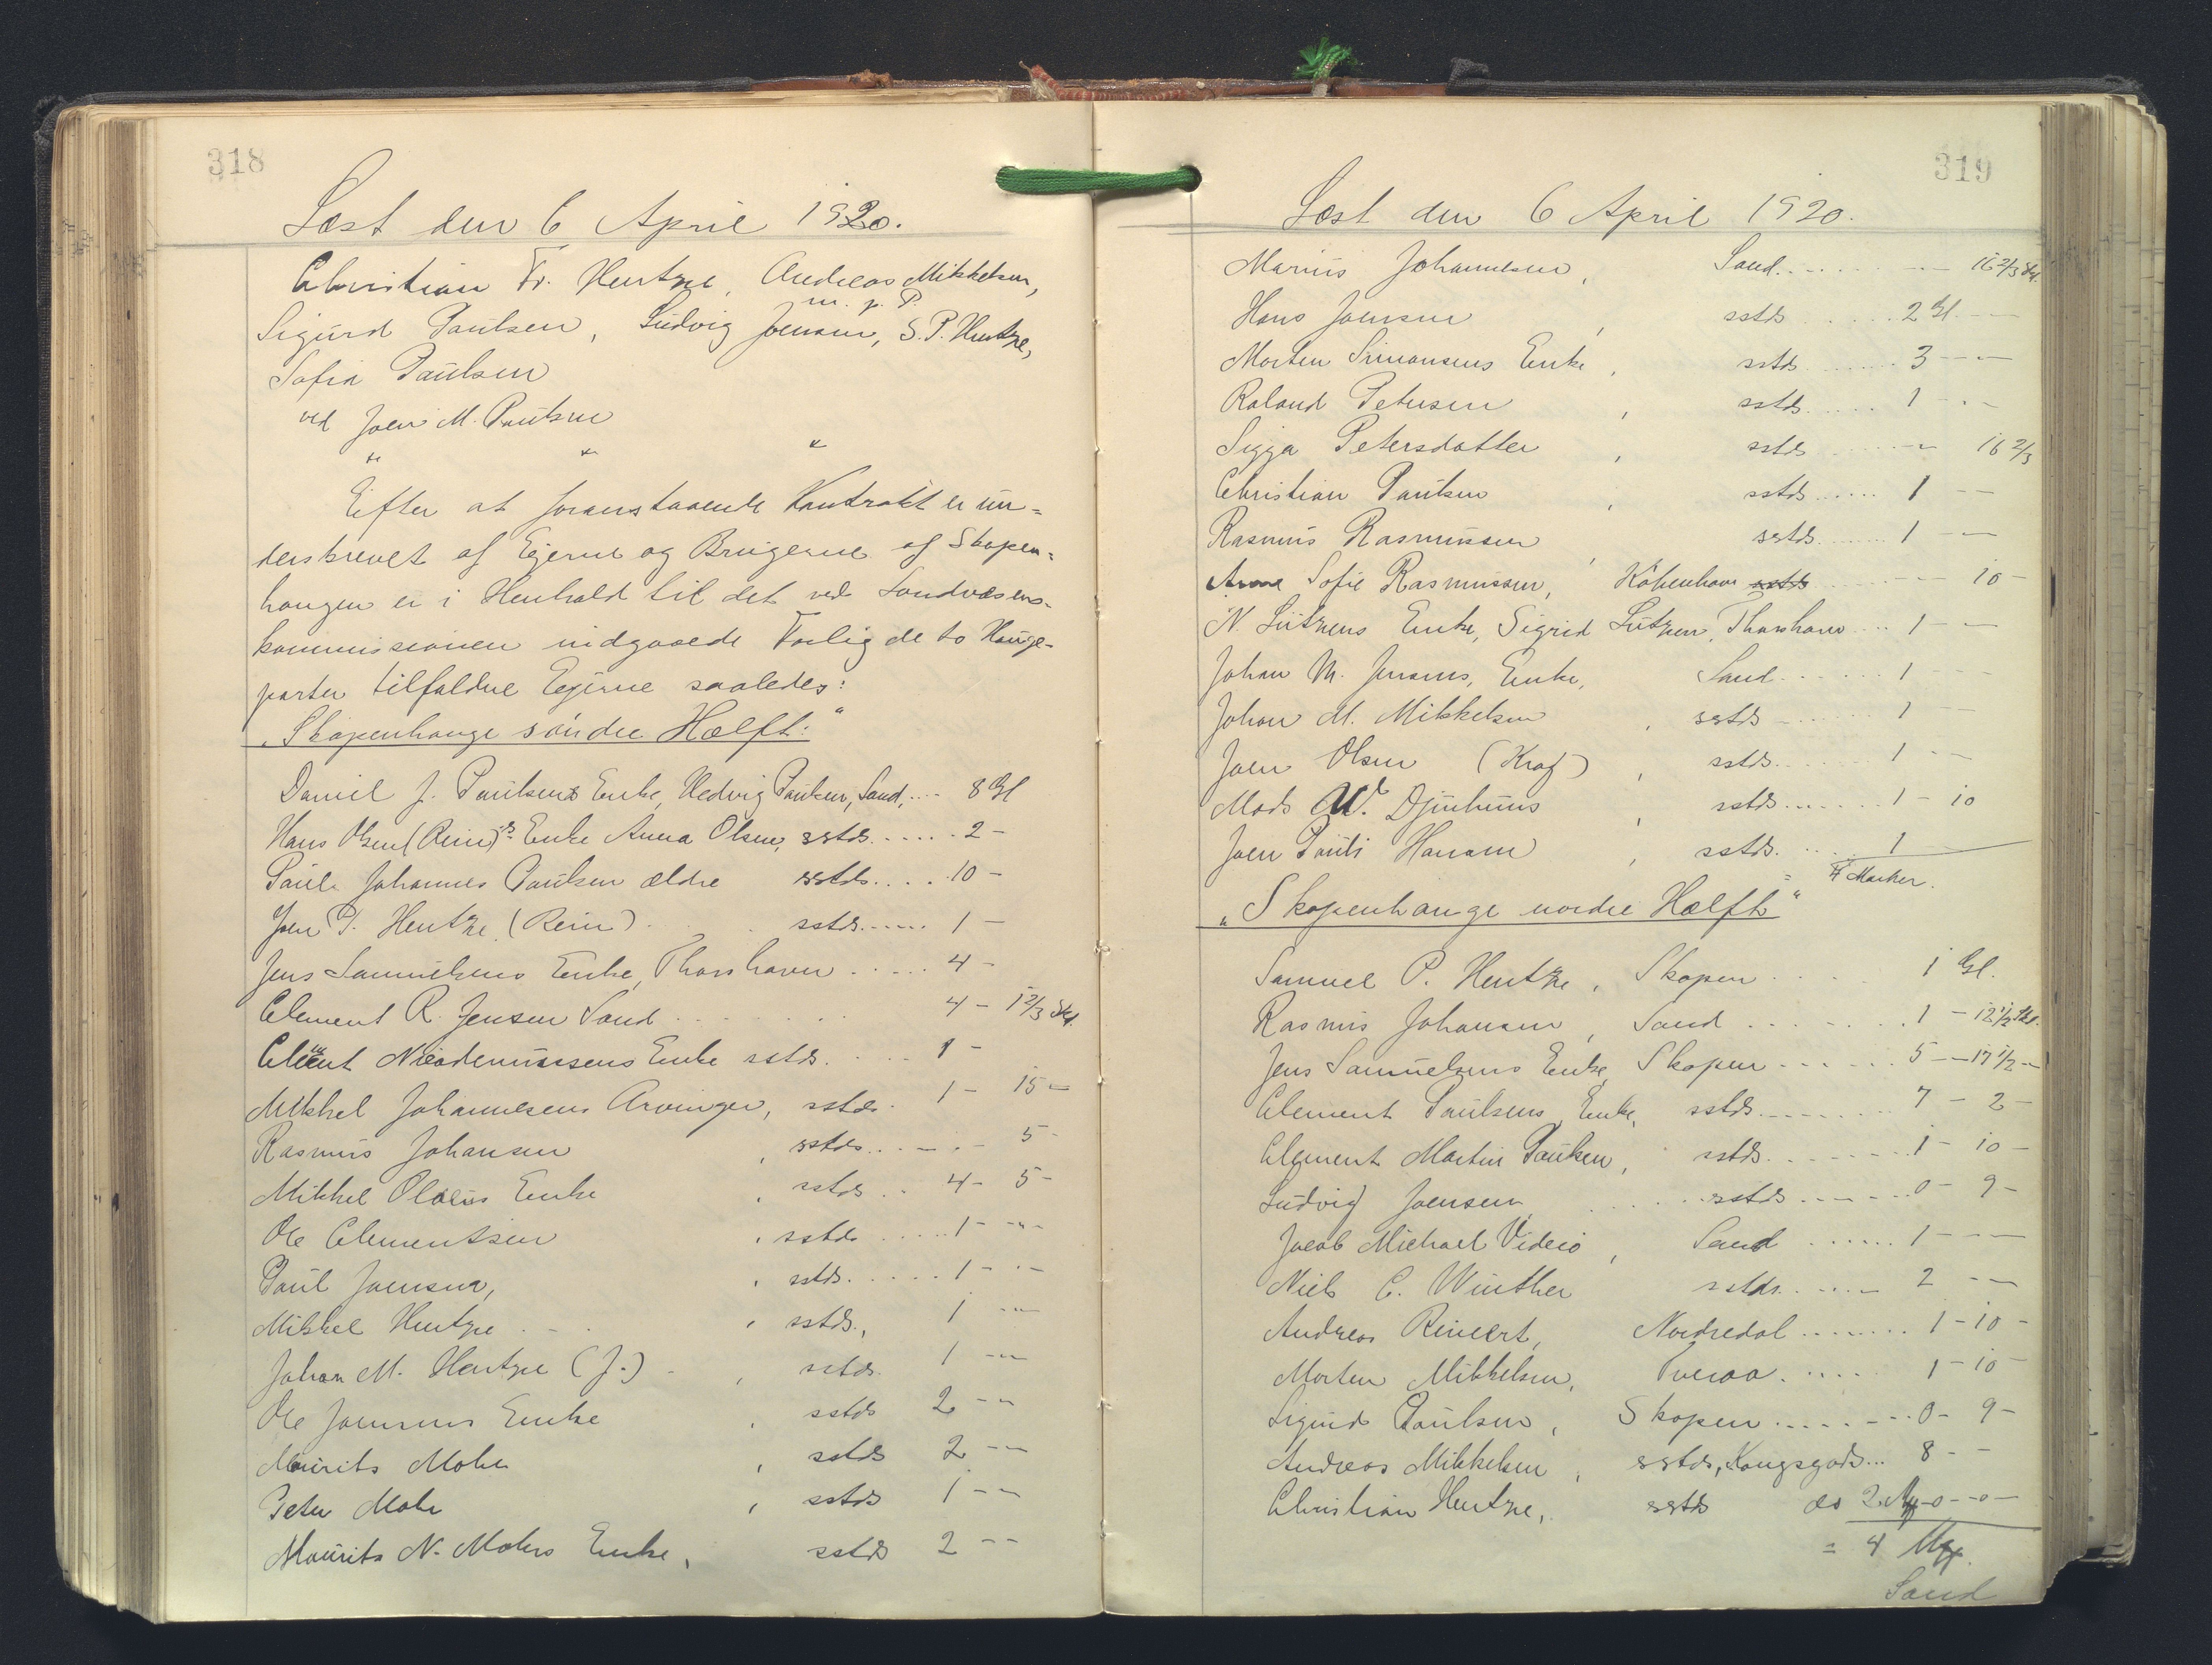 318
Læst den 6 April 1920.
Christian Fr. Hentze, Andreas Mikkelsen,
m. p. P.
Sigurd Paulsen, Ludvig Joensen, S. P. Hentze,
Sofia Paulsen
ved Joen M. Poulsen
" " "
Efter at foranstaaende Kontrakt er un=
derskrevet af Ejerne og Brugerne af Skopen=
haugen er i Henhold til det ved Landvæsens-
kommissionen indgaaede Forlig de to Hauge-
parter tilfaldne Ejerne saaledes:
"Skopenhauge söndre Hælft:"
Daniel J. Paulsens Enke, Hedvig Paulsen, Sand, .... 8 Gl
Hans Olsen (Rein)s Enke Anna Olsen, sstds. ..... 2 -
Paule Johannes Paulsen ældre sstds. .... 10 -
Joen P. Hentze (Rein) . . sstds. ..... 1 -
Jens Samuelsens Enke, Thorshavn ..... 4 -
Clement R. Jensen Sand ........ 4 - 1 2/3 Sk.
Clement Nicodemussens Enke sstds. .... 1 -
Mikkel Johannesens Arvinger, sstds. 1 - 15 -
Rasmus Johansen , sstds. .. - . - 5 -
Mikkel Olaeus Enke , sstds .. 4 - 5 -
Ole Clementsen , sstds ..... 1 - -"-
Paul Joensen, , sstds. ..... 1 - - -
Mikkel Hentze . - . , sstds., 1 - -
Johan M. Hentze (J.) - , sstds. 1 - -
Ole Joensens Enke , sstds 2 - -
Mourits Mohr , sstds 2 - -
Peter Mohr , sstds 1 - -
Mourits N. Mohrs Enke, sstds 2 - -
319
Læst den 6 April 1920.
Marius Johannesen, Sand. ..... - 16 2/3 Sk.
Hans Joensen , sstds ..... 2 Gl. -
Morten Simonsens Enke , sstds. ...... 3 - - -
Roland Petersen , sstds. ..... 1 - - -
Sigga Petersdatter , sstds ..... - 16 2/3
Christian Paulsen , sstds. ..... 1 - -
Rasmus Rasmussen , sstds. ...... 1 - -
Anna Sofie Rasmussen, Köbenhavn sstds ..... - 10 -
N. Lützens Enke, Sigrid Lützen, Thorshavn ... 1 - -
Johan M. Jensens, Enke, Sand ...... 1 - -
Johan M. Mikkelsen , sstds - ..... 1 - -
Joen Olsen (Krog) , sstds. ..... 1 - -
Mads W. Djurhuus , sstds. ...... 1 - 10
Joen Pauli Hansen , sstds. ... 1
= 4 Marker.
"Skopenhauge nordre Hælft"
Samuel P. Hentze, Skopen ... 1 Gl.
Rasmus Johansen, Sand ....... 1 - 12 1/2 Sk.
Jens Samuelsens Enke, Skopen ...... 5 - 17 1/2 -
Clement Paulsens Enke, sstds. ....... 7 - 2 -
Clement Martin Paulsen, sstds. ....... 1 - 10 -
Ludvig Joensen, .... sstds ...... 0 - 9 -
Jacob Michael Viderö, Sand ...... 1 - - -
Niels C. Winther sstds. ..... 2 - -
Andreas Reinert, Nordredal ........ 1 - 10 -
Morten Mikkelsen, Tveraa. ..... 1 - 10 -
Sigurd Paulsen, Skopen ........ 0 - 9 -
Andreas Mikkelsen, sstds, Kongsgods ... 8 - -
Christian Hentze, sstds do 2 Mk - 0 - - 0 -
= 4 Mk.
Sand